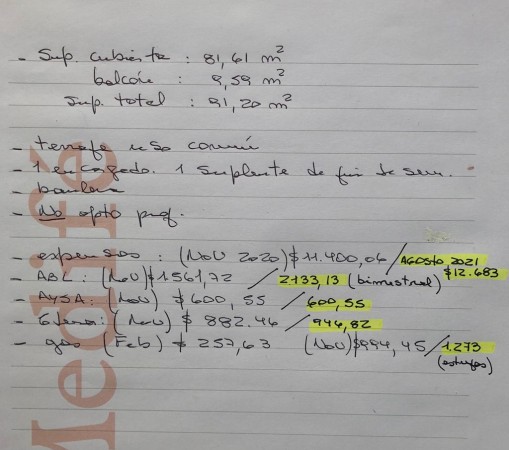 - Sup. cubierta : 81,61 m²
balcón : 9,59 m²
Sup. total : 91,20 m²
- terraza uso común
- 1 encargado. 1 suplente de fin de sem.
- baulera
- No apto prof.
- expensas : (Nov 2020) $ 11.400,06 / AGOSTO 2021 $12.683
- ABL : (Nov) $ 1561,72 / 2133,13 (bimestral)
- AYSA : (Nov) $ 600,55 / 600,55
- Edenor : (Nov) $ 882.46 / 946,82
- gas (Feb) $ 257,63 (Nov) $994,45 / 1.273
(estufas)
Medifé